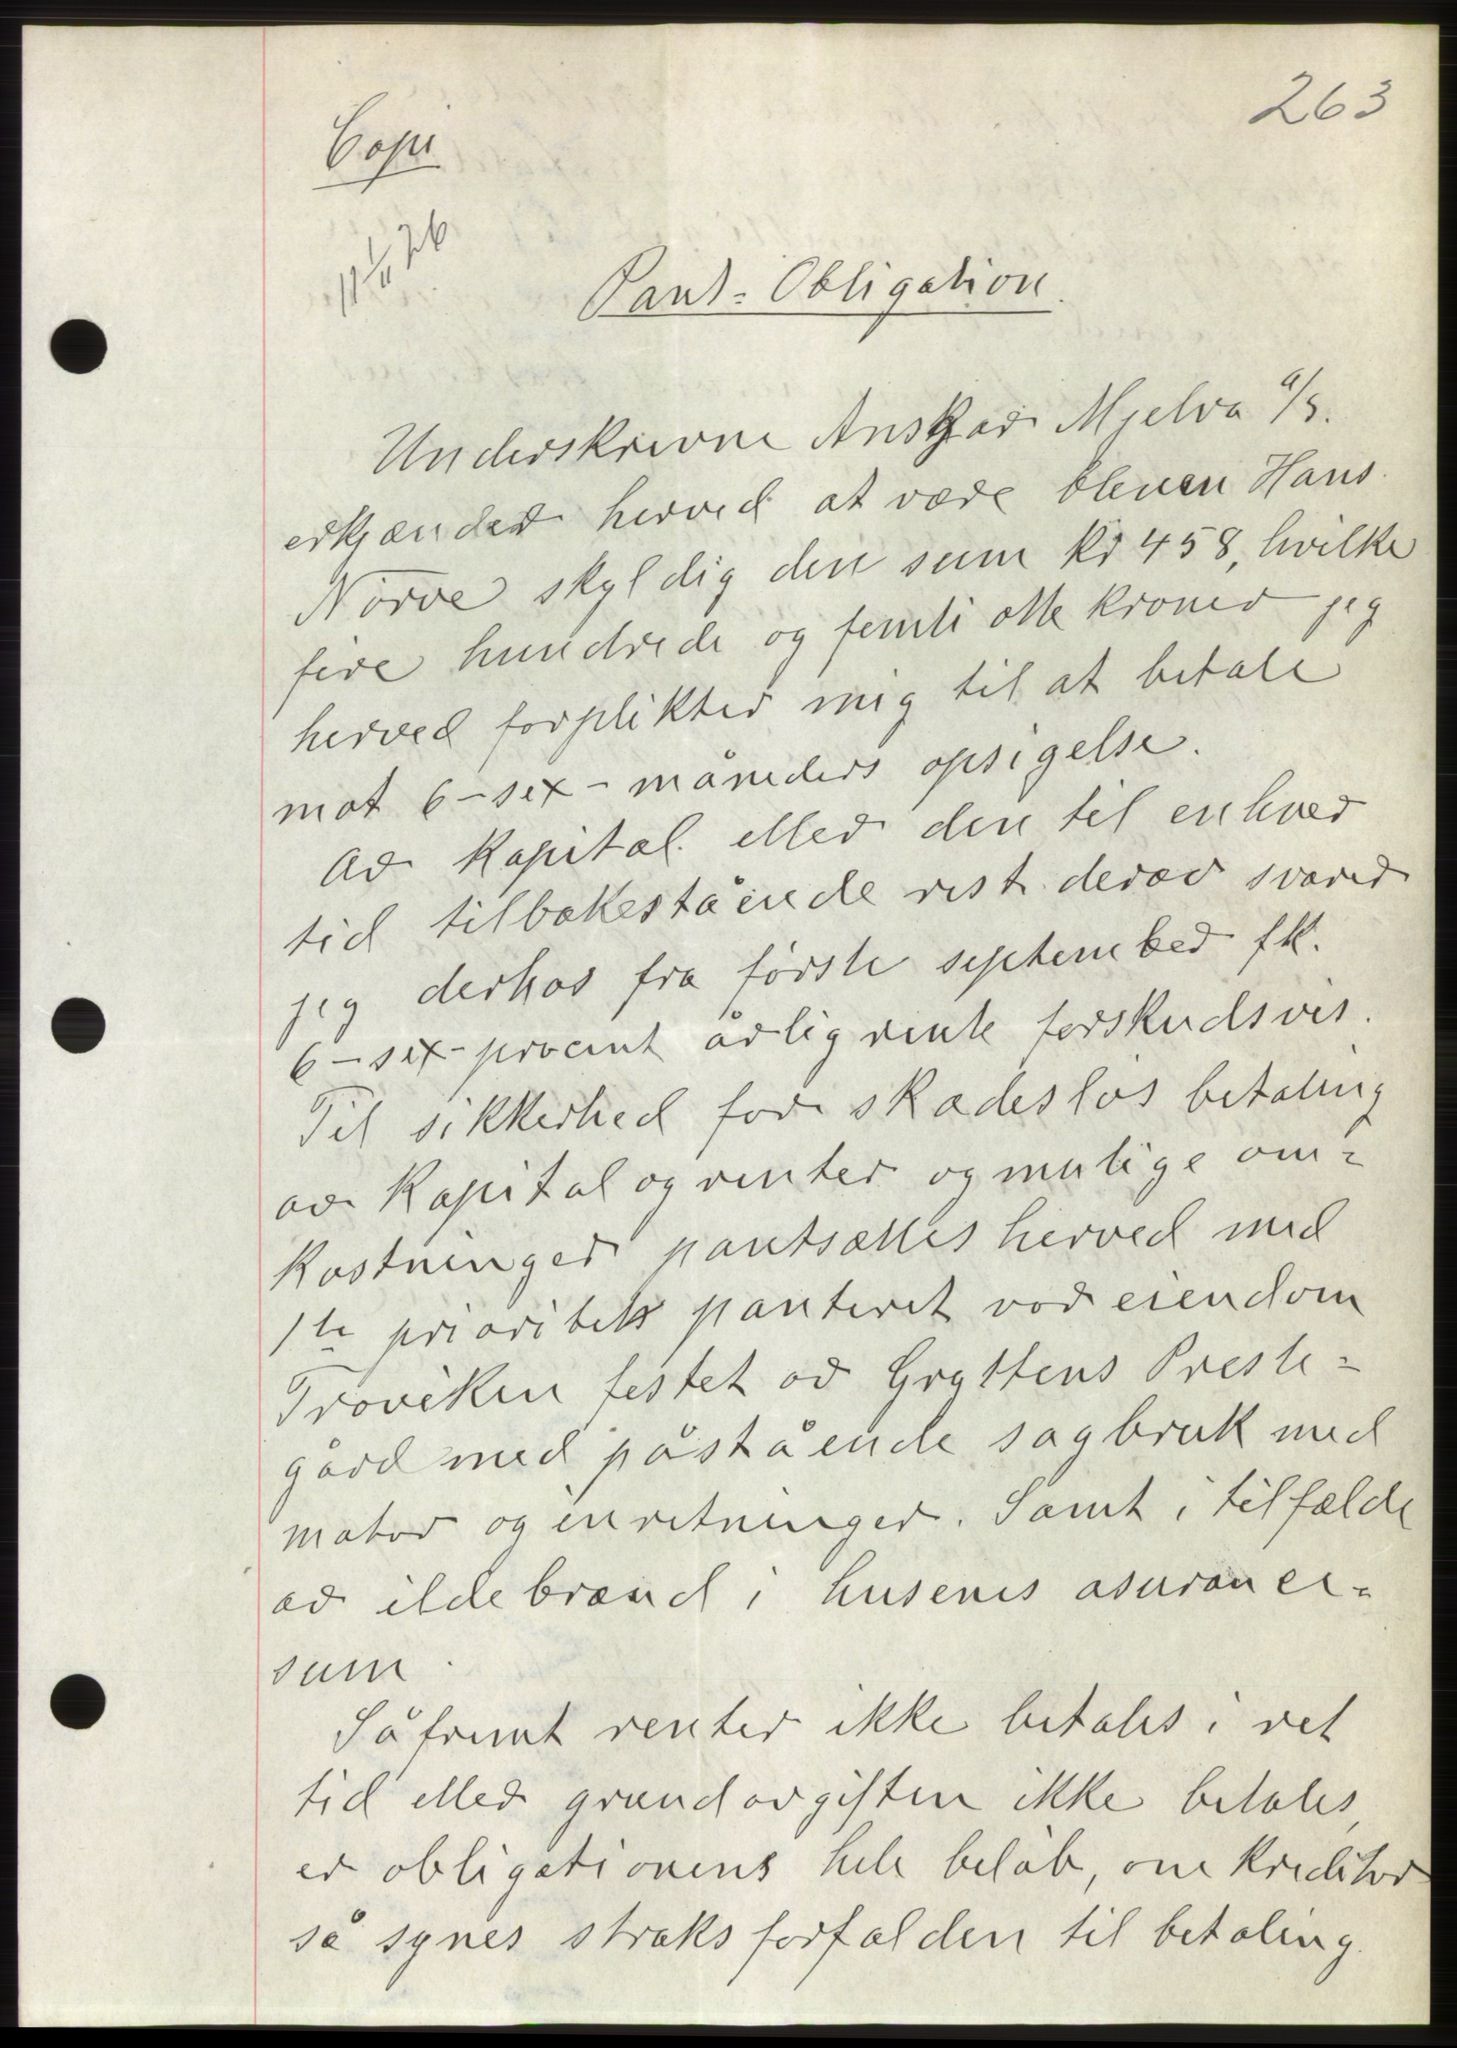 263
Copi
11/11 26
Pant-Obligation.
Underskrevne Ansgar Mjelva a/s.
erkjænder herved at være bleven Hans
Nørve skyldig den sum kr 458, hvilke
fire hundrede og femti otte kroner jeg
herved forplikter mig til at betale
mot 6-sex-måneders opsigelse.
Av kapital eller den til enhver
tid tilbakestående rest derav svarer
jeg derhos fra første september fk.
6-sex-procent årlig rente forskudsvis.
Til sikkerhed for skadesløs betaling
av kapital og renter og mulige om=
kostninger pantsættes herved med
1te prioritets panteret vor eiendom
Troviken festet av Gryttens Preste=
gård med påstående sagbruk med
motor og inretninger. Samt i tilfælde
av ildebrand i husenes asurance=
sum.
Såfremt renter ikke betales i ret
tid eller grundavgiften ikke betales,
er obligationens hele beløb, om kreditor
så synes straks forfalden til betaling.